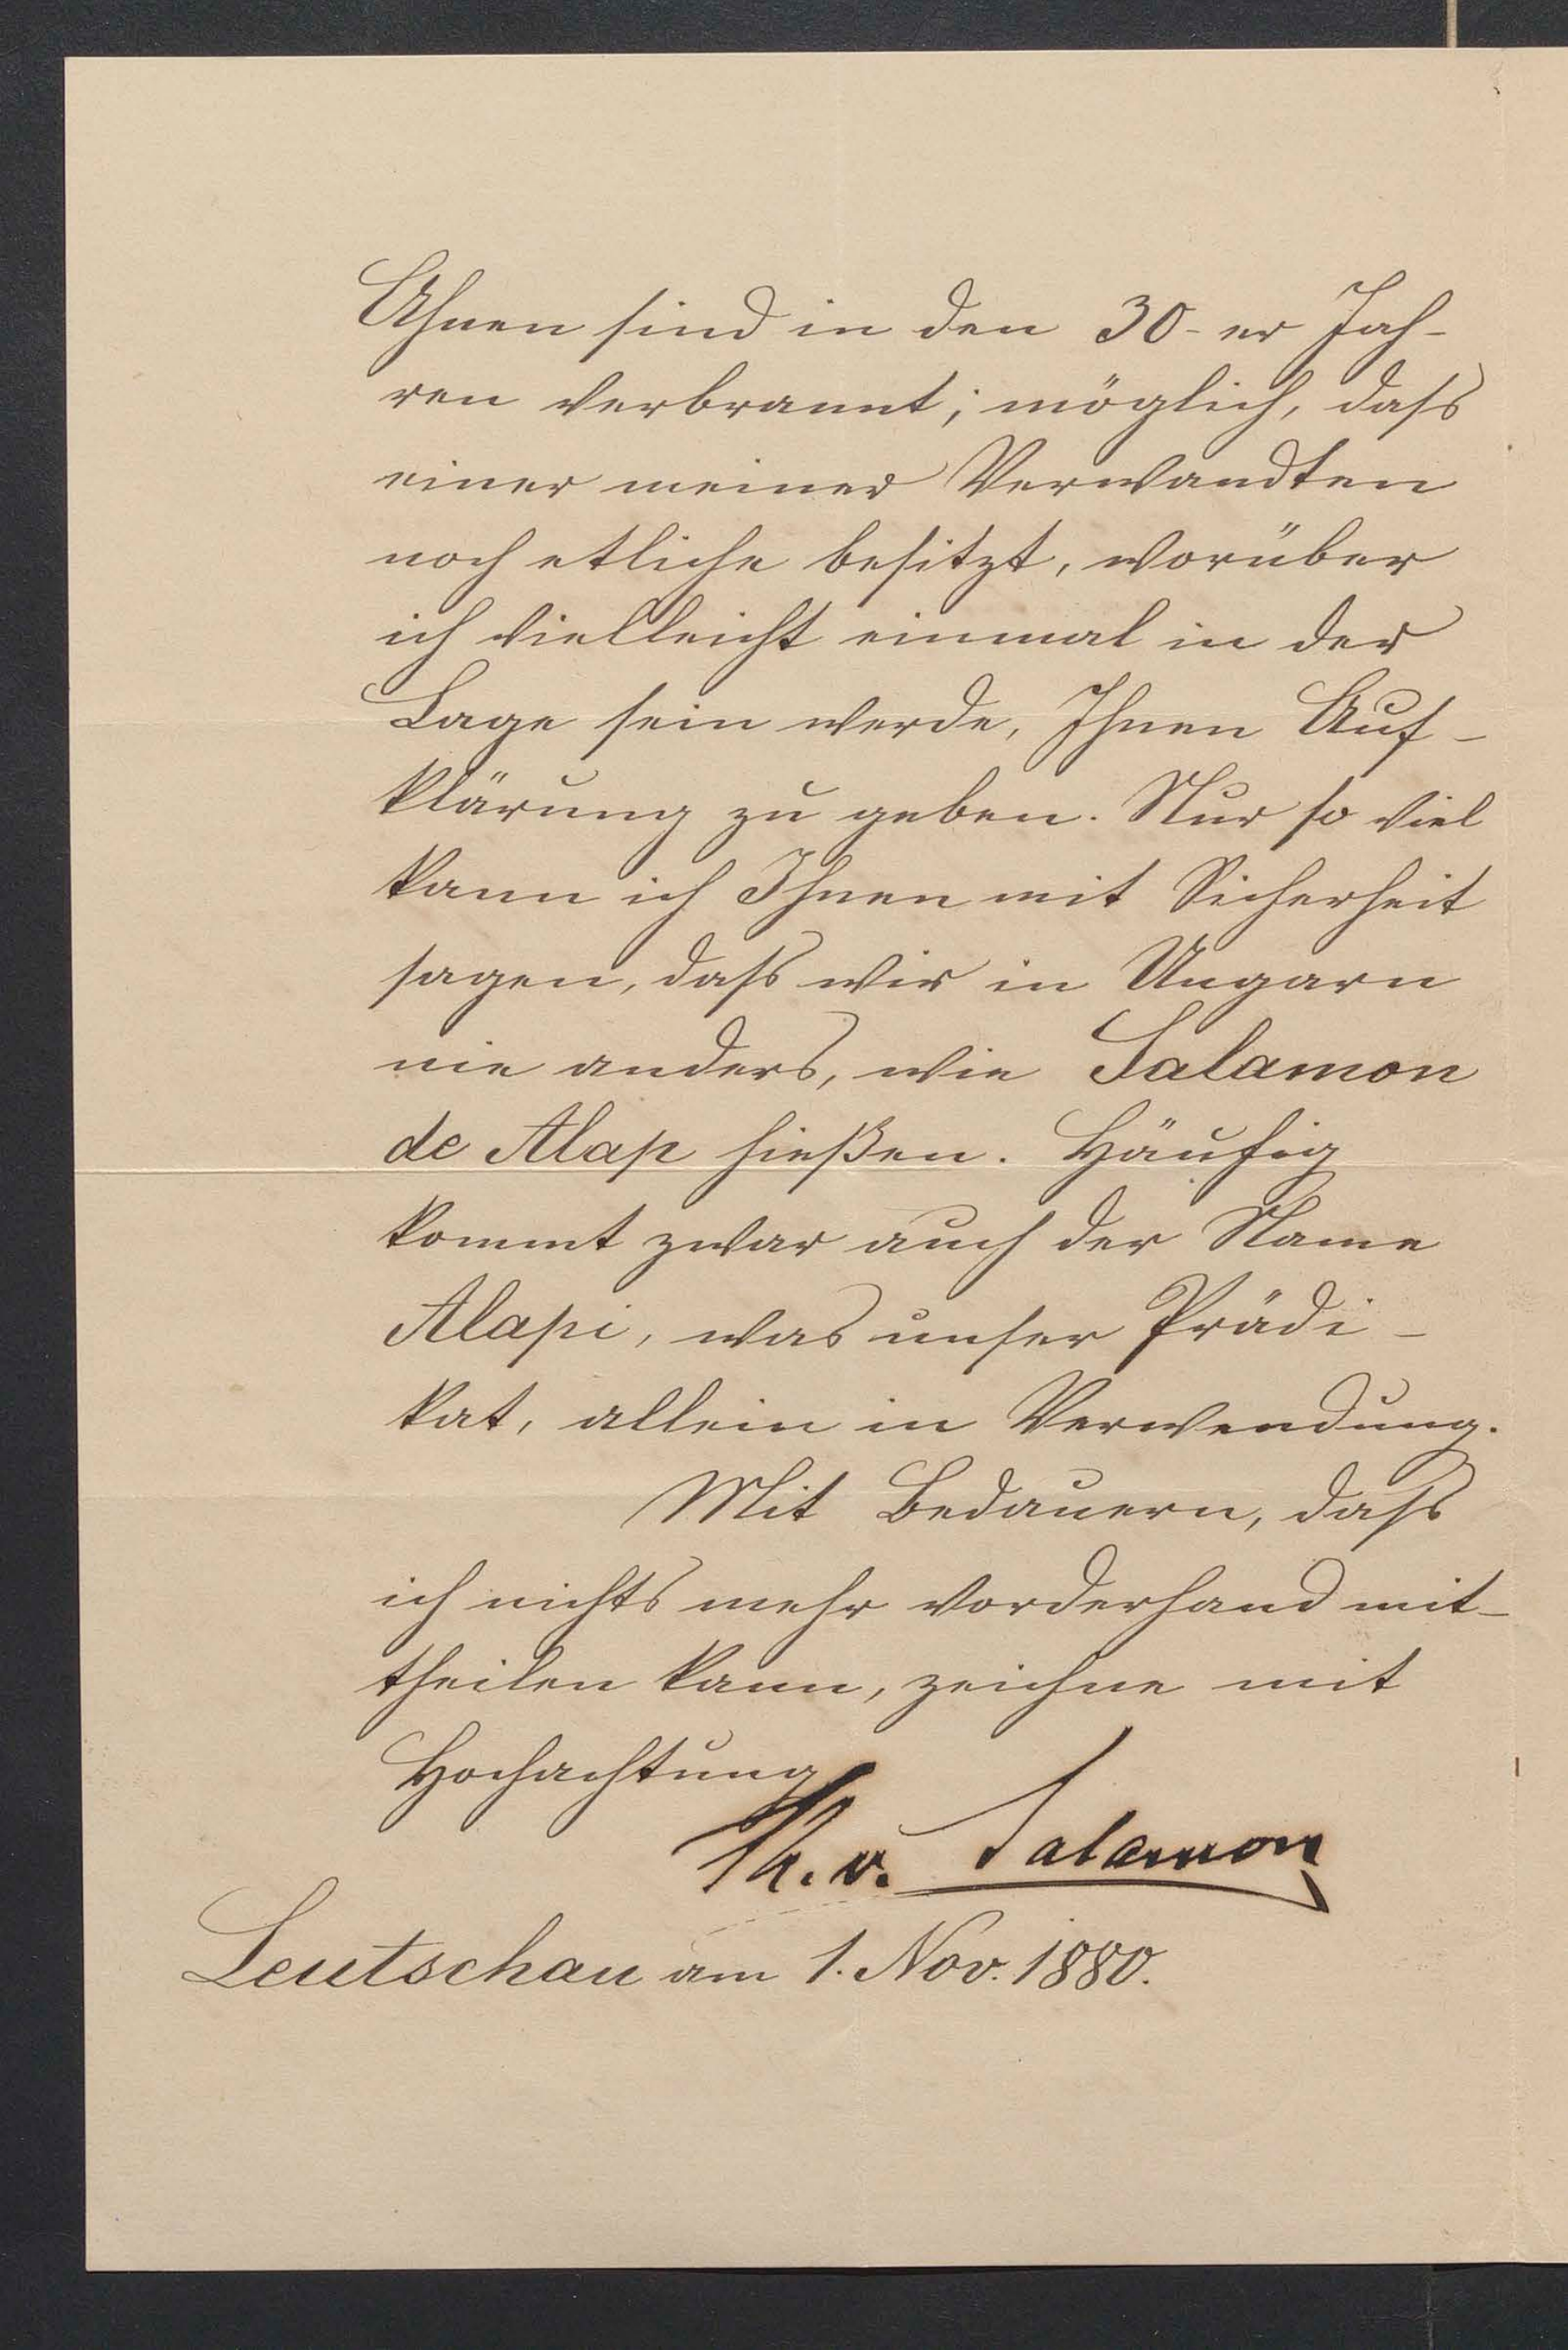 Ahnen sind in den 30-er Jah-
ren verbrannt; möglich, dass
einer meiner Verwandten
noch etliche besitzt, worüber
ich vielleicht einmal in der
Lage sein werde, Ihnen Auf-
klärung zu geben. Nur so viel
kann ich Ihnen mit Sicherheit
sagen, dass wir in Ungarn
nie anders, wie Salamon
de Alap hießen. Häufig
kommt zwar auch der Name
Alapi, was unser Prädi-
kat, allein in Verwendung.
Mit Bedauern, dass
ich nichts mehr vorderhand mit-
theilen kann, zeichne mit
Hochachtung
v. Salamon
Leutschau am 1. Nov. 1880.